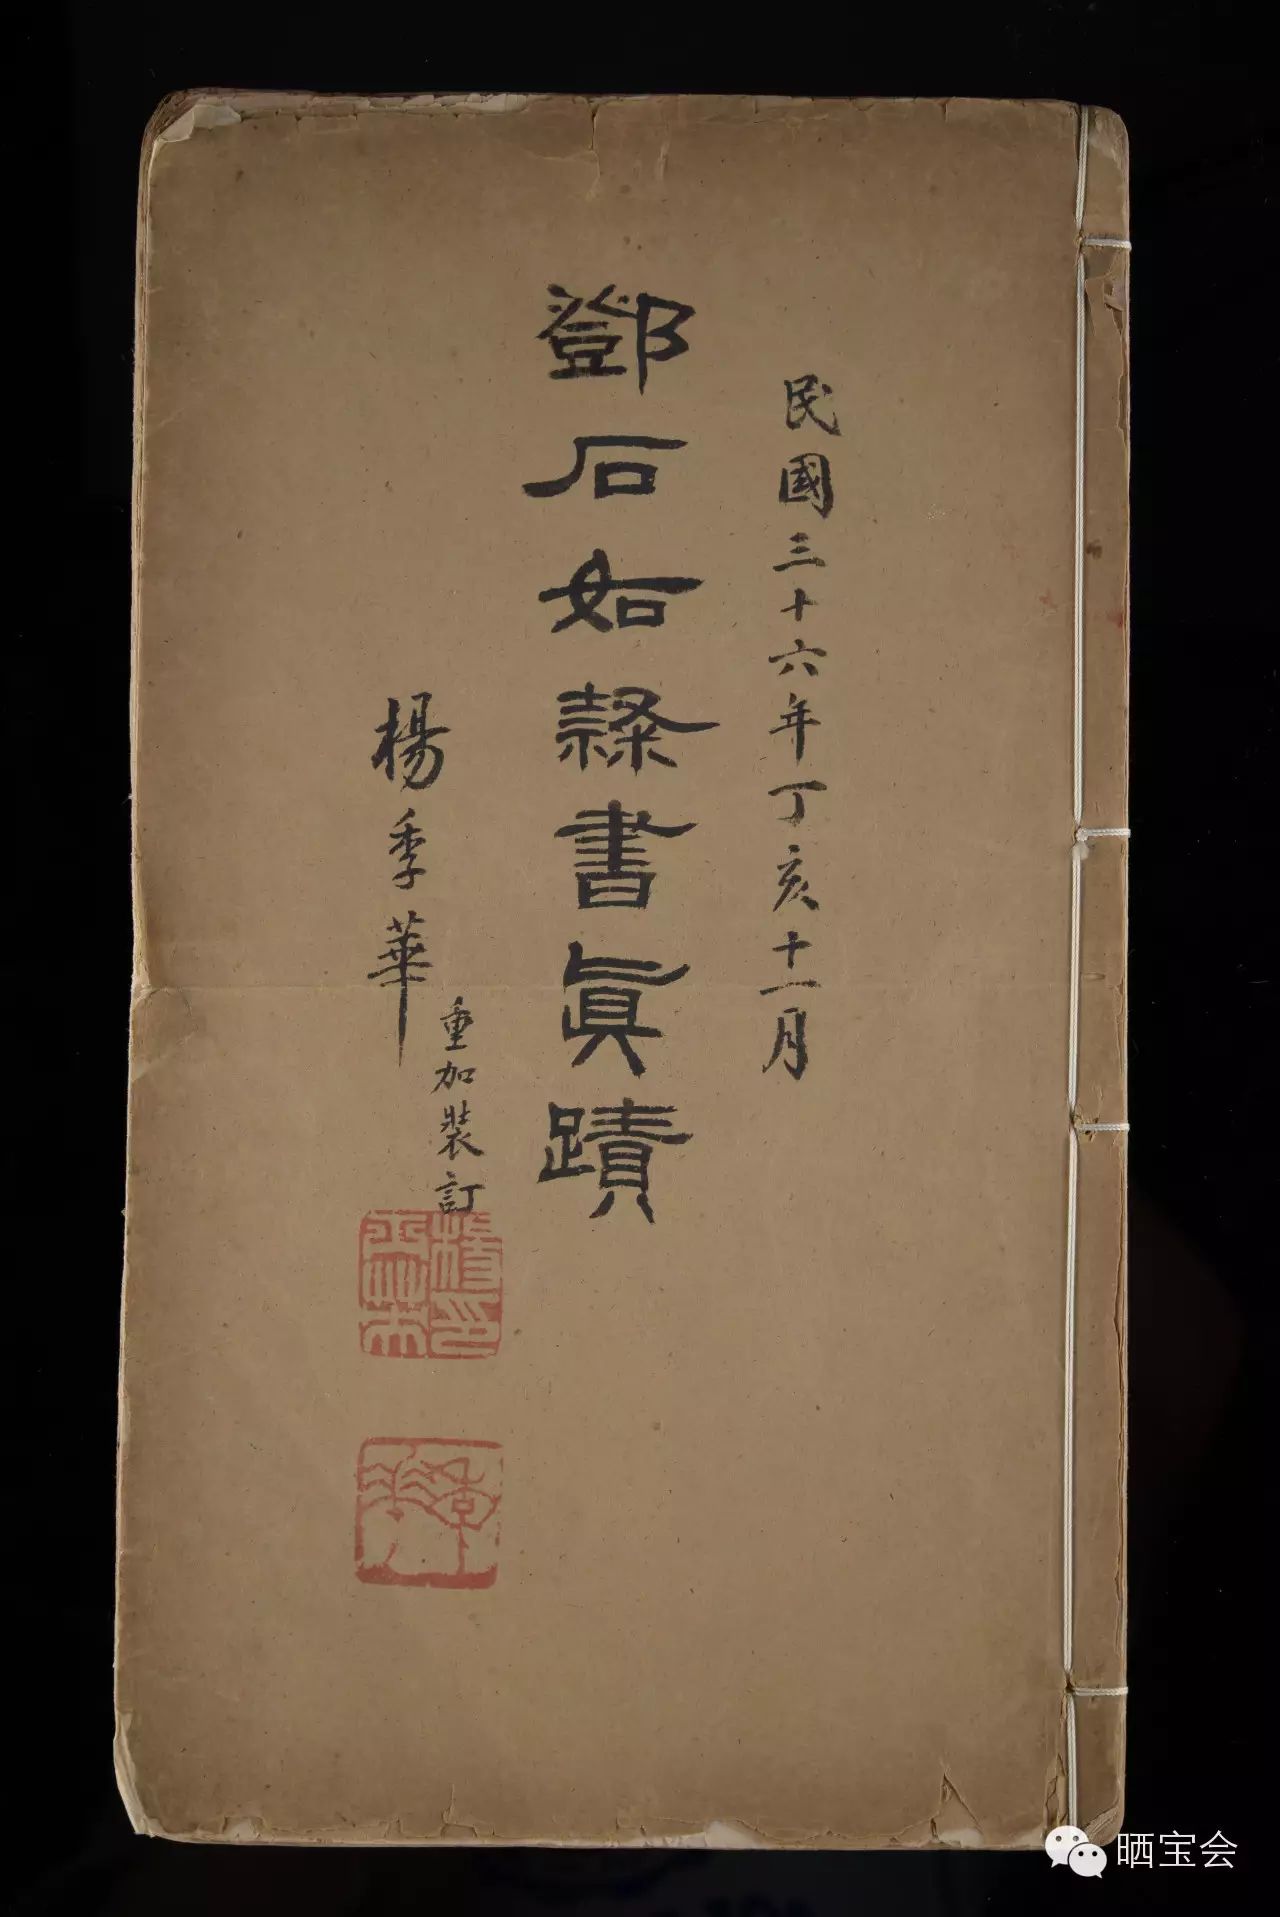 民國三十六年丁亥十一月
鄧石如隸書眞蹟
楊季華
重加裝訂
晒宝会